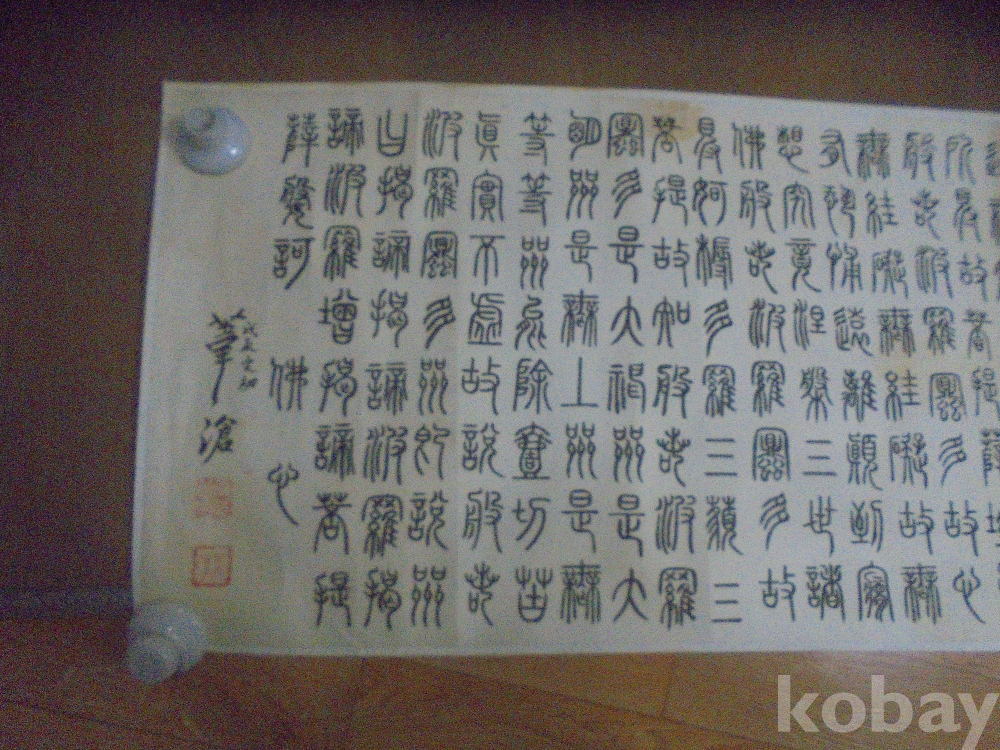 所得故菩提薩埵
般若波羅蜜多故心
無罣礙無罣礙故無
有恐怖遠離顛倒夢
想究竟涅槃三世諸
佛般若波羅蜜多故
得阿耨多羅三藐三
菩提故知般若波羅
蜜多是大神咒是大
明咒是無上咒是無
等等咒能除壹切苦
眞實不虛故說般若
波羅蜜多咒即說咒
曰揭諦揭諦波羅揭
諦波羅僧揭諦菩提
薩婆訶 佛心
kobay